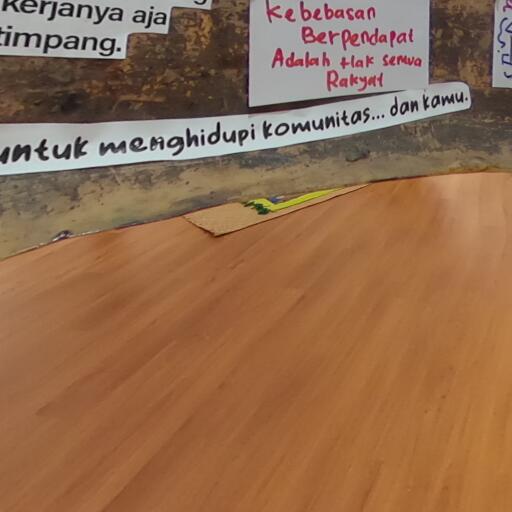 kerjanya aja
timpang.
Kebebasan
Berpendapat
Adalah Hak semua
Rakyat
untuk menghidupi komunitas... dan kamu.